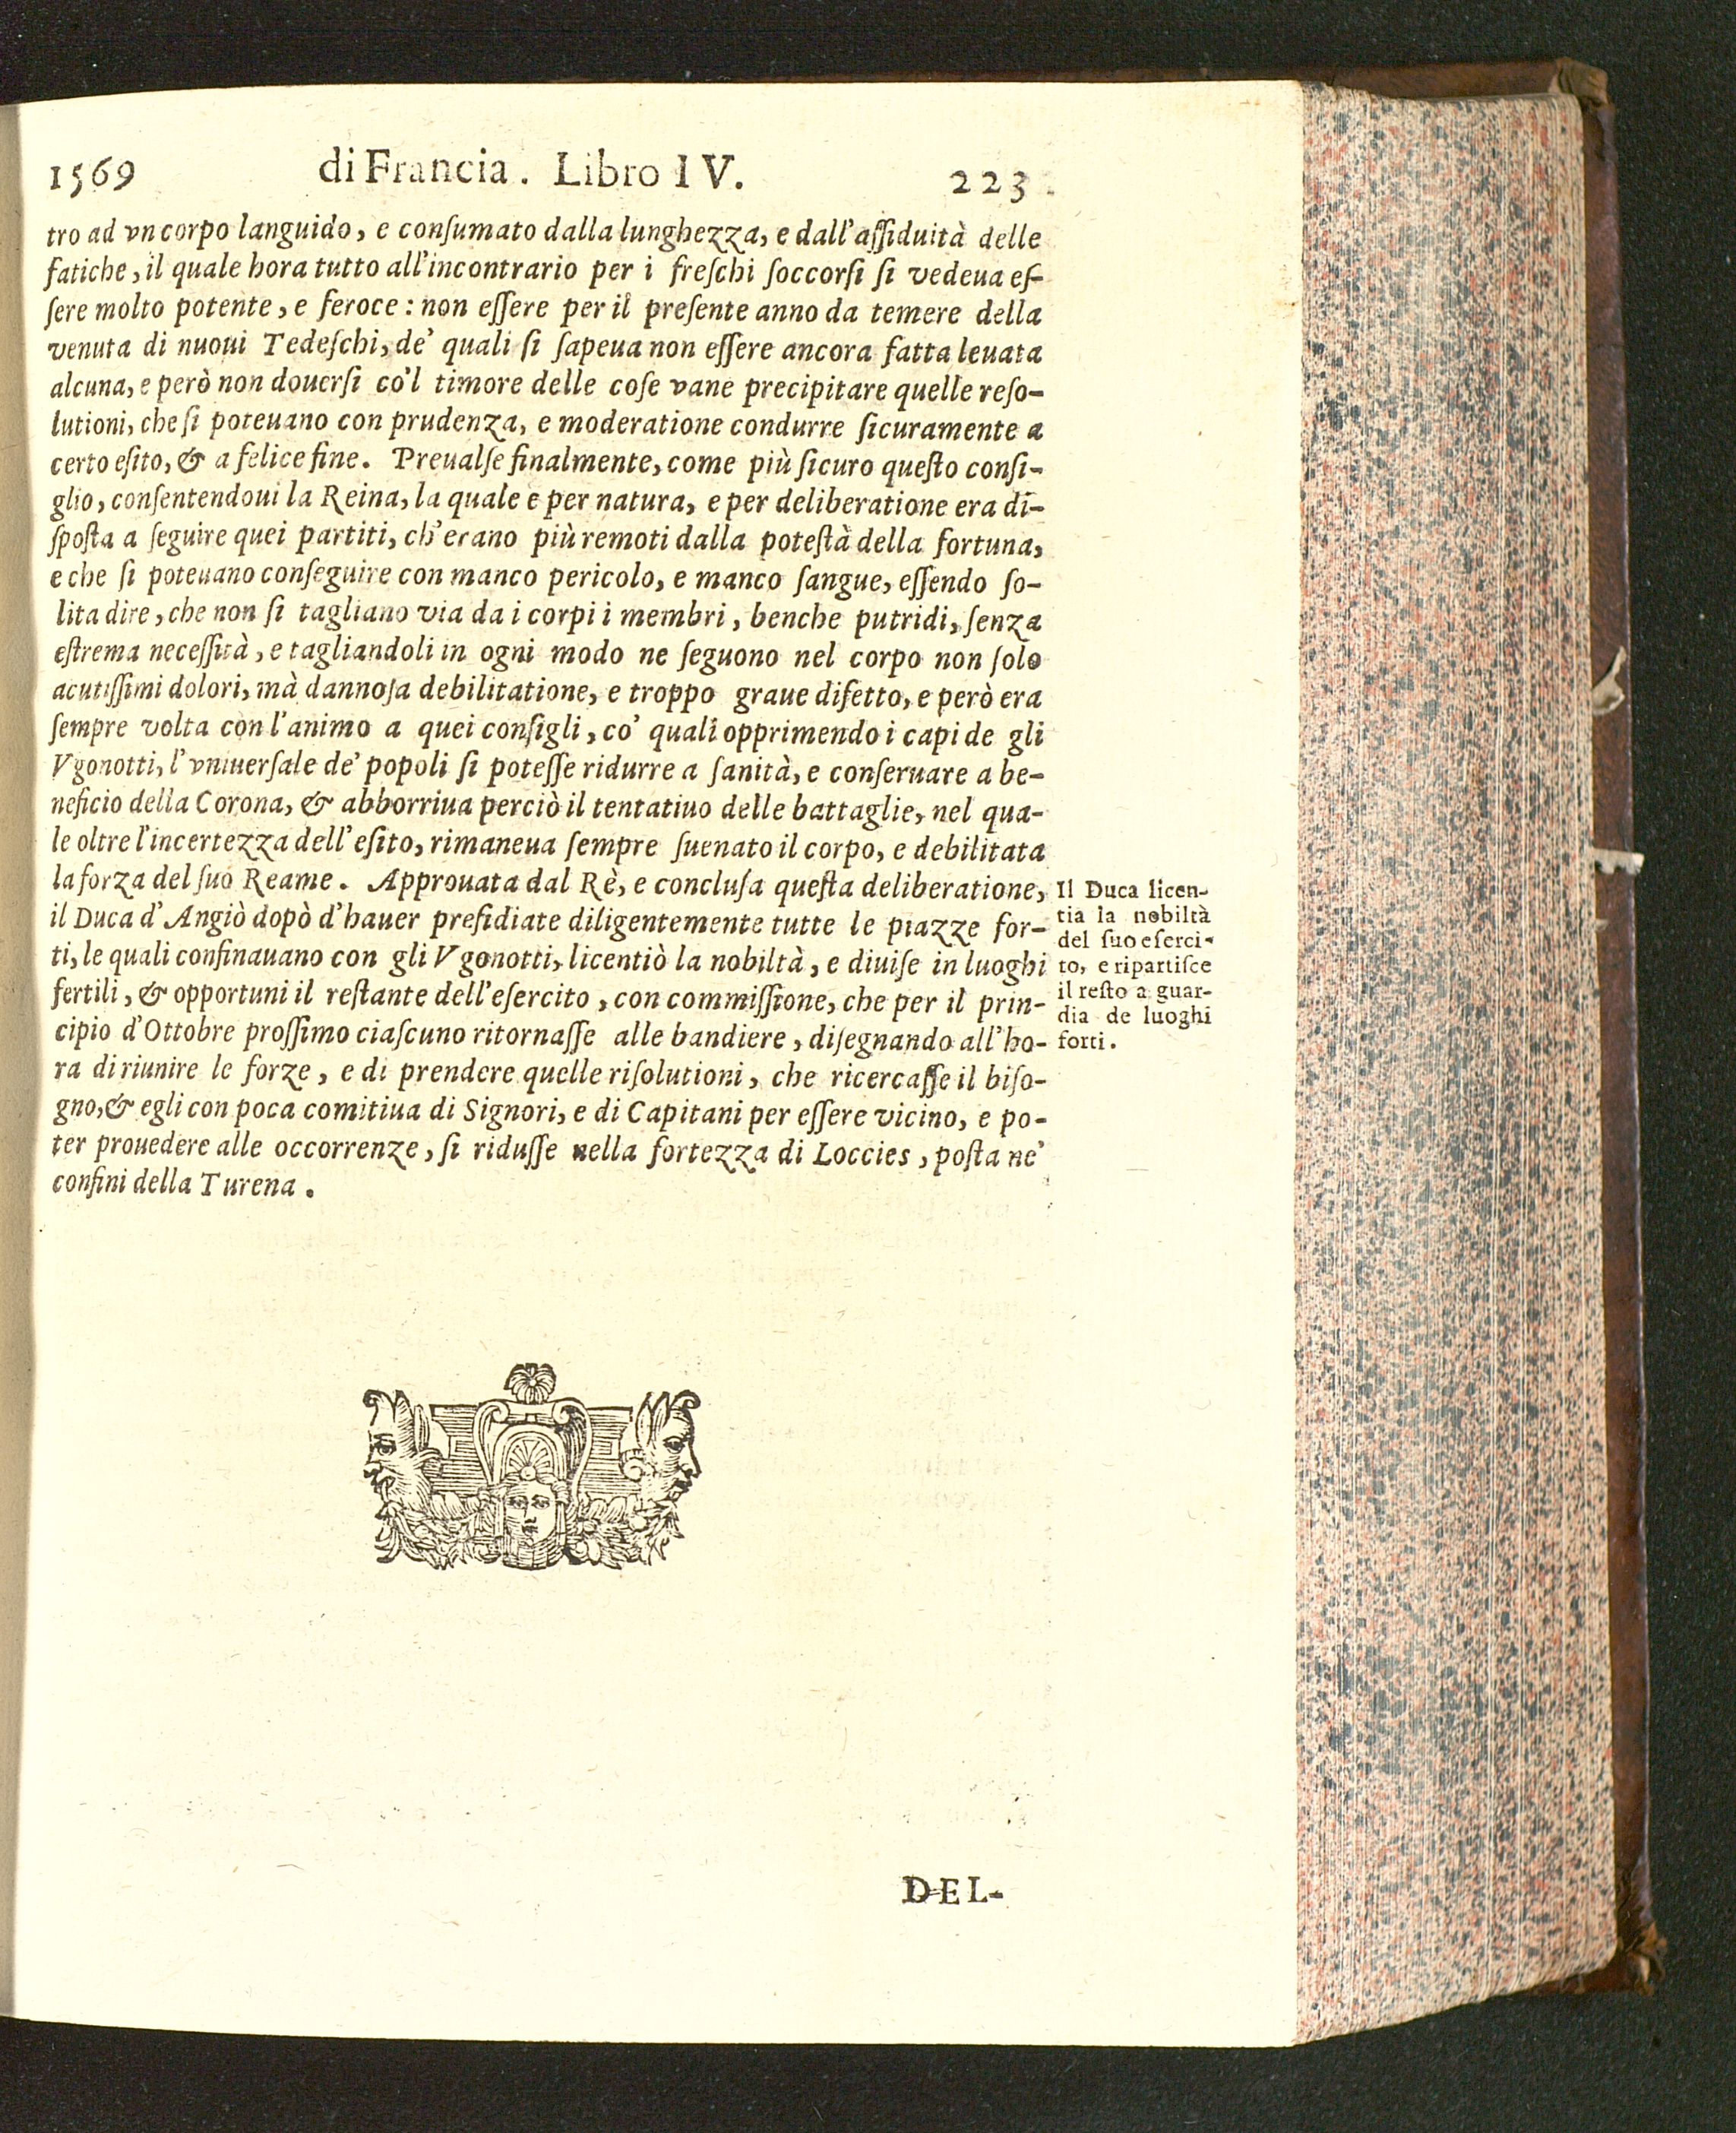 1569 di Francia. Libro IV. 223
tro ad vn corpo languido, e conſumato dalla lunghezza, e dall'aſſiduità delle
fatiche, il quale hora tutto all'incontrario per i freſchi ſoccorſi ſi vedeua eſ-
ſere molto potente, e feroce: non eſſere per il preſente anno da temere della
venuta di nuoui Tedeſchi, de' quali ſi ſapeua non eſſere ancora fatta leuata
alcuna, e però non douerſi co'l timore delle coſe vane precipitare quelle reſo-
lutioni, che ſi poteuano con prudenza, e moderatione condurre ſicuramente a
certo eſito, & a felice fine. Preualſe finalmente, come più ſicuro queſto conſi-
glio, conſentendoui la Reina, la quale e per natura, e per deliberatione era di-
ſpoſta a ſeguire quei partiti, ch'erano più remoti dalla poteſtà della fortuna,
e che ſi poteuano conſeguire con manco pericolo, e manco ſangue, eſſendo ſo-
lita dire, che non ſi tagliano via da i corpi i membri, benche putridi, ſenza
eſtrema neceſſità, e tagliandoli in ogni modo ne ſeguono nel corpo non ſolo
acutiſſimi dolori, mà dannoſa debilitatione, e troppo graue difetto, e però era
ſempre volta con l'animo a quei conſigli, co' quali opprimendo i capi de gli
Vgonotti, l'vniuerſale de' popoli ſi poteſſe ridurre a ſanità, e conſeruare a be-
neficio della Corona, & abborriua perciò il tentatiuo delle battaglie, nel qua-
le oltre l'incertezza dell'eſito, rimaneua ſempre ſuenato il corpo, e debilitata
la forza del ſuo Reame. Approuata dal Rè, e concluſa queſta deliberatione,
il Duca d'Angiò dopò d'hauer preſidiate diligentemente tutte le piazze for-
ti, le quali confinauano con gli Vgonotti, licentiò la nobiltà, e diuiſe in luoghi
fertili, & opportuni il reſtante dell'eſercito, con commiſſione, che per il prin-
cipio d'Ottobre proſſimo ciaſcuno ritornaſſe alle bandiere, diſegnando all'ho-
ra di riunire le forze, e di prendere quelle riſolutioni, che ricercaſſe il biſo-
gno, & egli con poca comitiua di Signori, e di Capitani per eſſere vicino, e po-
ter prouedere alle occorrenze, ſi riduſſe nella fortezza di Loccies, poſta ne'
confini della Turena.
Il Duca licen-
tia la nobiltà
del ſuo eſerci-
to, e ripartiſce
il reſto a guar-
dia de luoghi
forti.
DEL-